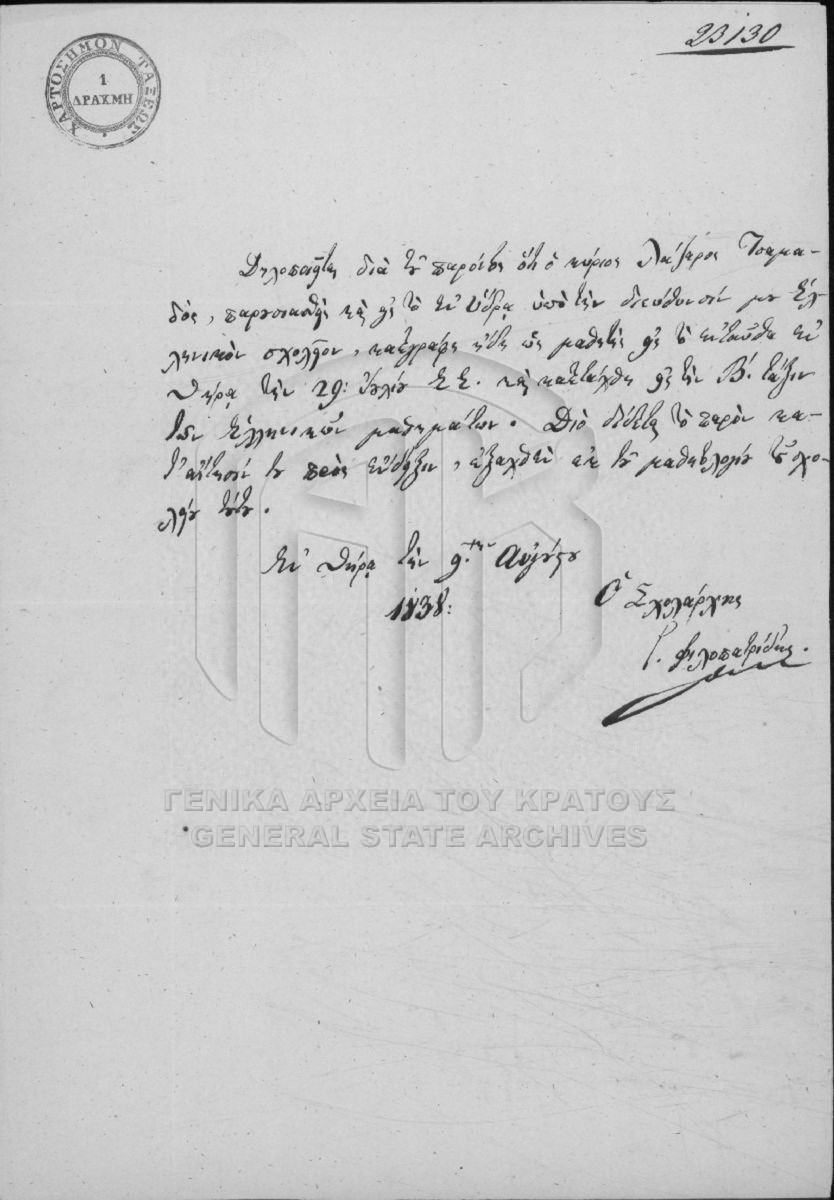 23130
ΧΑΡΤΟΣΗΜΟΝ ΤΑΞΕΩΣ
1
ΔΡΑΧΜΗ
Δηλοποιεῖται διὰ τοῦ παρόντος ὅτι ὁ κύριος Λάζαρος Τσαμα-
δός, παρουσιασθεὶς καὶ εἰς τὸ ἐν Ὕδρᾳ ὑπὸ τὴν διεύθυνσίν μου Ἑλ-
ληνικὸν σχολεῖον, κατεγράφη ἤδη ὡς μαθητὴς εἰς τὸ ἐνταῦθα ἐν
τὴν 29: Ἰουλίου Ε.Ε. καὶ κατετάχθη εἰς τὴν Β΄. τάξιν
τῶν Ἑλληνικῶν μαθημάτων. Διὸ δίδεται τὸ παρὸν κα-
τ' αἴτησίν του πρὸς ἔνδειξιν, ἐξαχθὲν ἐκ τοῦ μαθητολογίου τοῦ σχο-
λείου τούτου.
Ἐν τὴν 9.ην Αὐγούστου
1838:
Ὁ Σχολάρχης
Γ. Φιλοπατρίδης.
ΓΕΝΙΚΑ ΑΡΧΕΙΑ ΤΟΥ ΚΡΑΤΟΥΣ
GENERAL STATE ARCHIVES